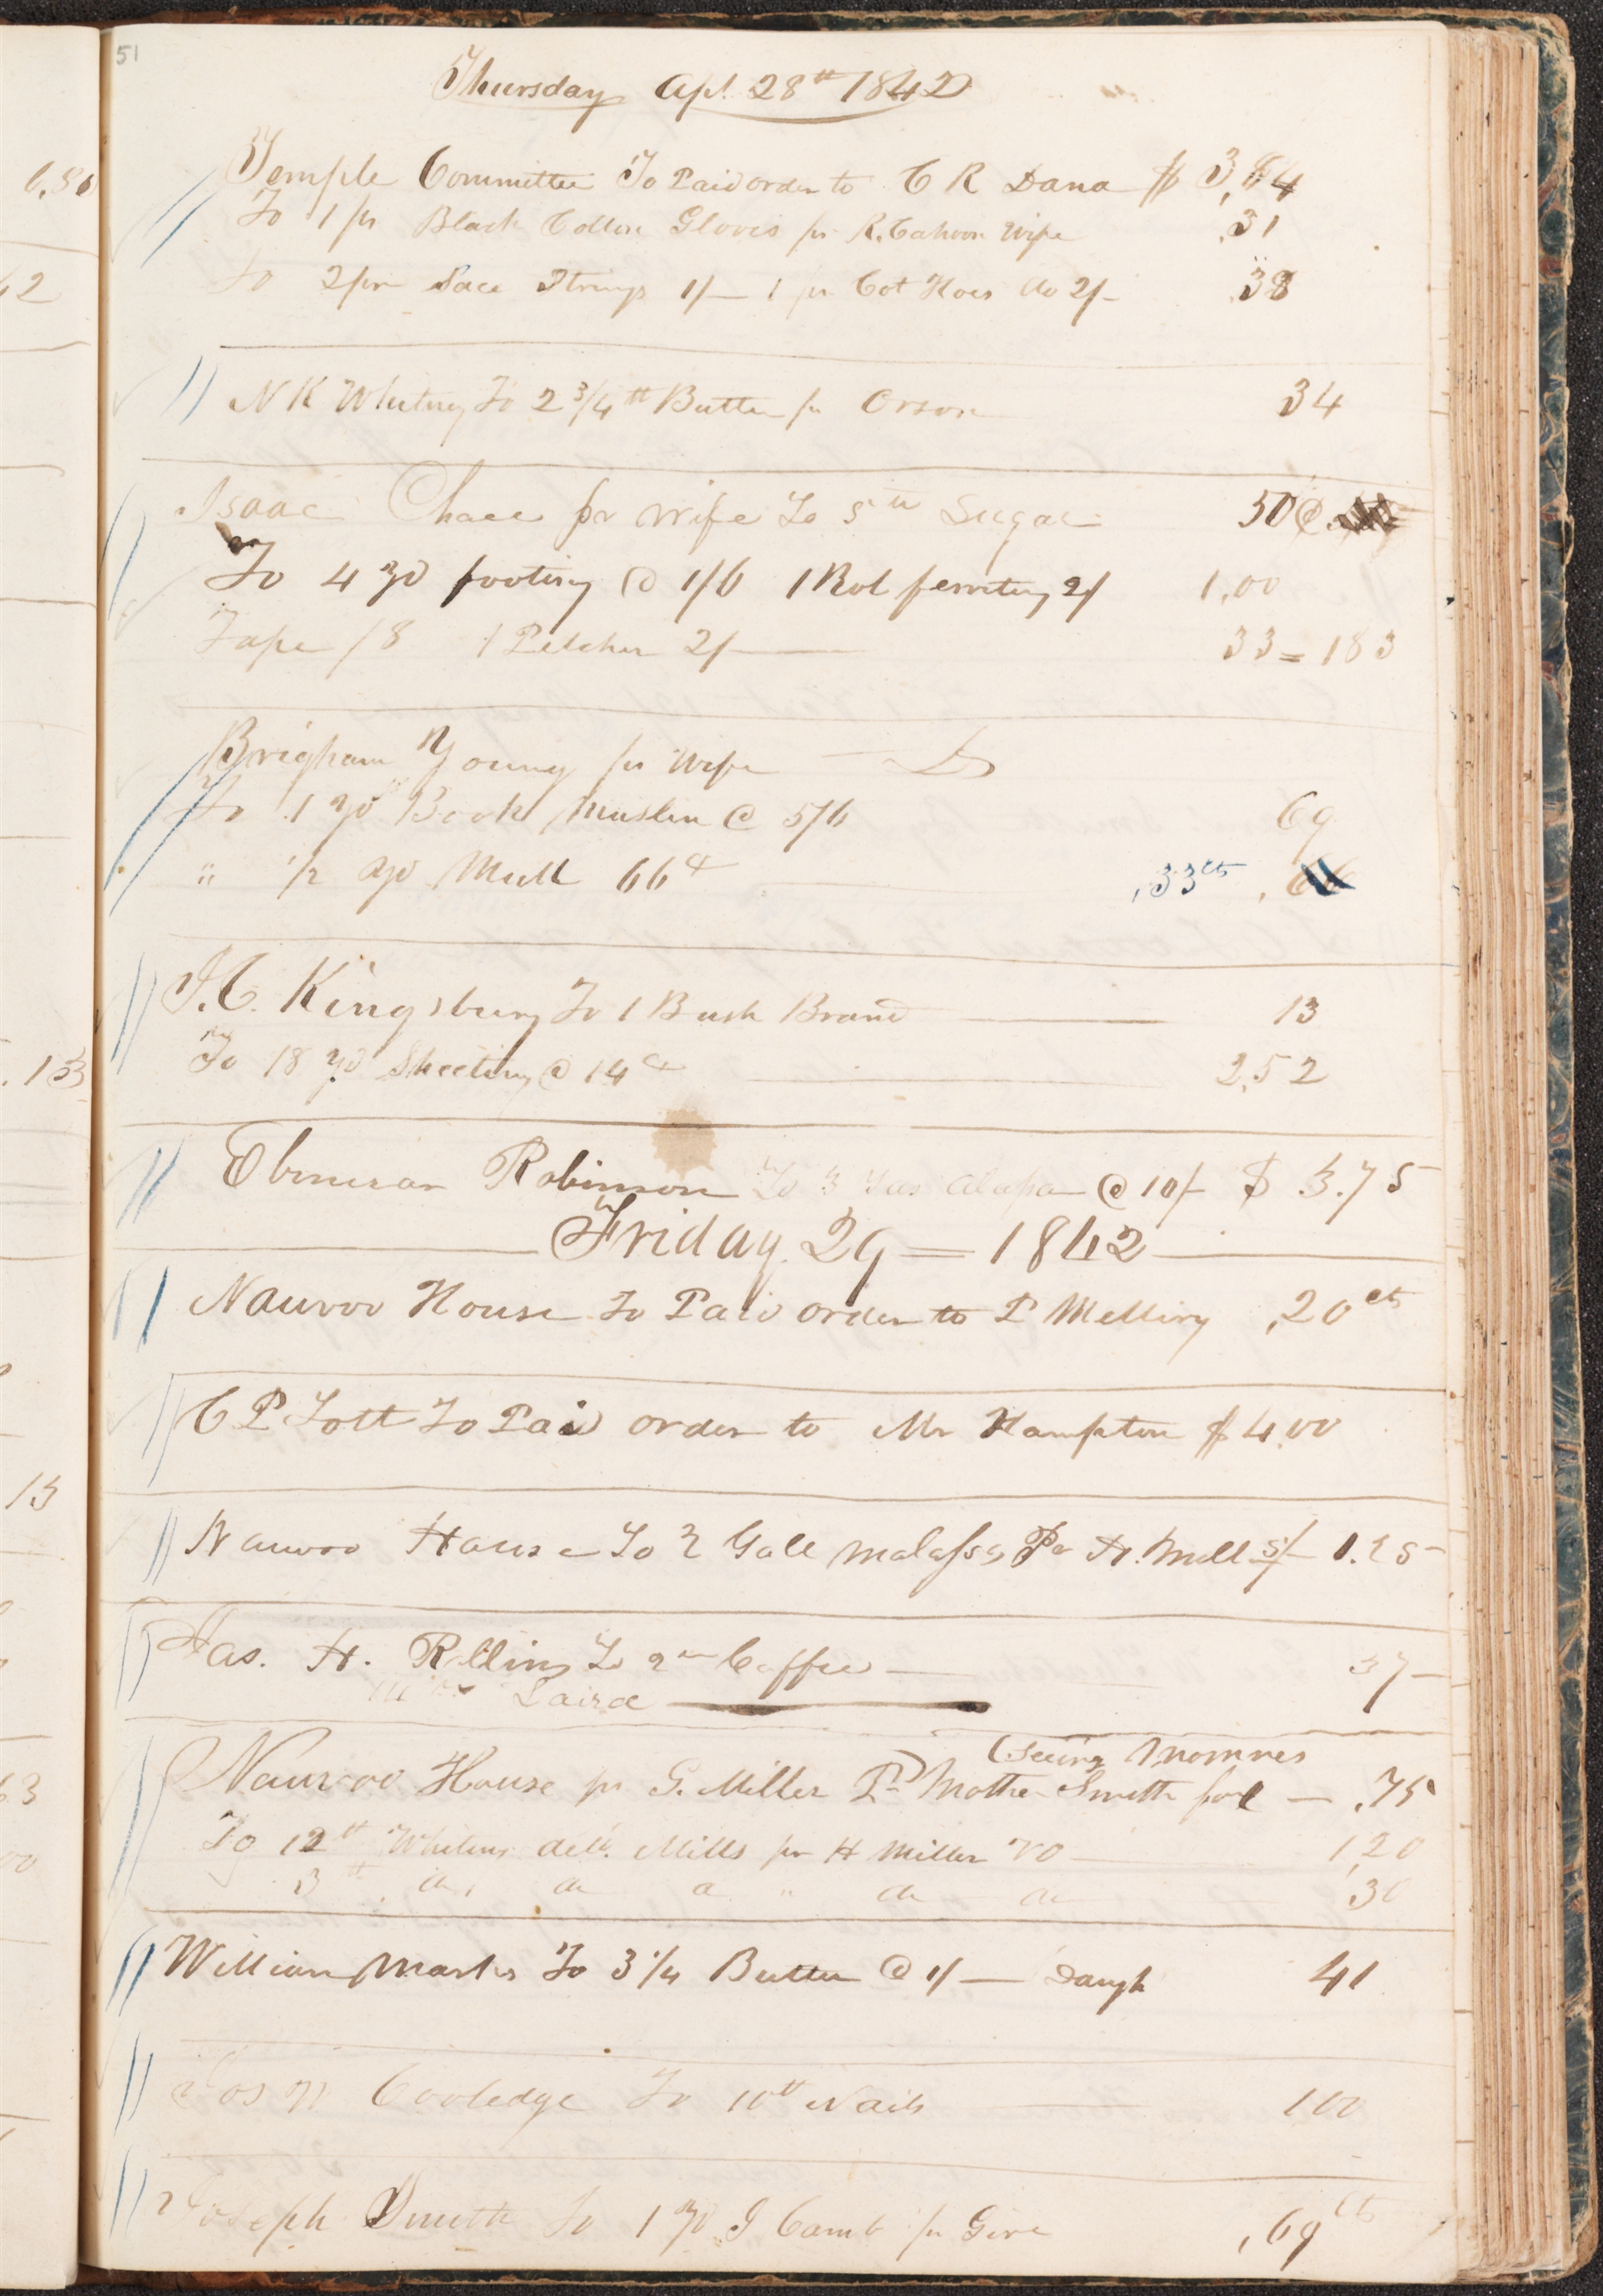 51
Thursday Apl. 28th 1842
Temple Committee To Paid order to C R Dana $ 3,
To 1 pr Black Cotton Gloves pr R. Cahoon Wife .31
To 2 pr Lace Strings 1/— 1 pr Cot Hoes do 2/— .38
N K Whitney To 2 3/4 lb Butter pr Orson 34
Isaac Chace pr Wife To 5 lb Sugar 50
To 4 yd footing @ 1/6 1 Bol ferreting 2/ 1,00
Tape /8 1 Pitcher 2/— 33 = 183
Brigham Young pr Wife — Dr
To 1 yd Book Muslin @ 5/6 69
" 1/2 yd Mull 66c ,33cts , 66
J.C. Kingsbury To 1 Bush Brand 13
To 18 yd Sheeting @ 14c 2,52
Robinson To 3 @ 10/- $ 3.75
Friday. 29 — 1842
Nauvoo House To Paid order to P Melling ,20cts
C P Lott To Paid order to Mr Hampton $ 4,00
Nauvoo House To 2 Gall Per 5/- 1.25
Jas. H. Rollins To 2 lb Coffee — 37
Laird
(Seeing Mommies
Nauvoo House pr G. Miller Pd Mother Smith for — .75
To 12 lb Whiting deld. Mills pr H Miller VO — 1,20
3 lb 30
William Marks To 3 1/4 Butter @ 1/— Daugh 41
Jos W Cooledge To 10 lb Nails 100
Joseph Smith To 1 yd J Camb pr Girl ,69cts
6,50
62
.13
13
63
00